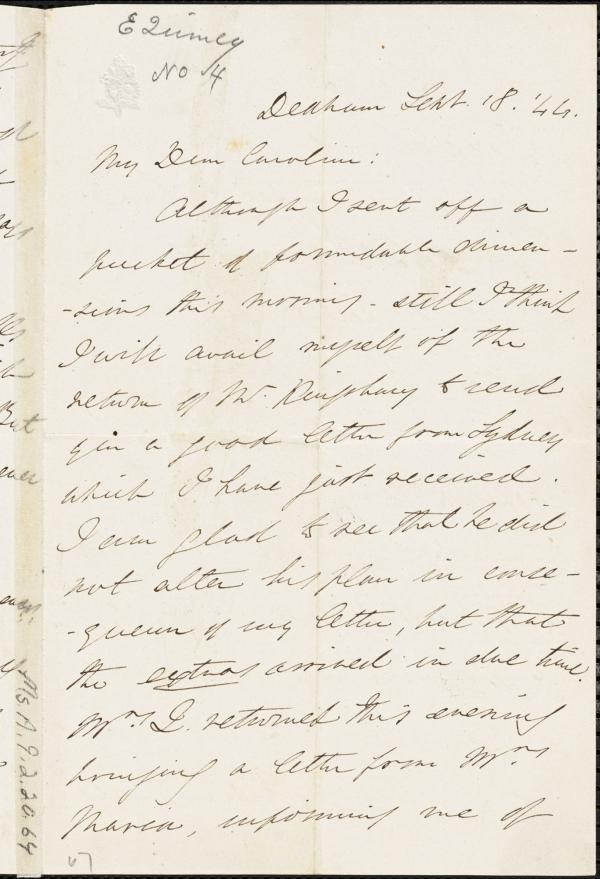 E Quincy
No 4
Dedham Sept. 18. '44.
My Dear Caroline:
Although I sent off a
packet of formidable dimen-
-sions this morning - still I think
I will avail myself of the
return of Mr. Kingsbury to send
you a good letter from Sydney
which I have just received.
I am glad to see that he did
not alter his plan in conse-
-quence of my letter, but that
the extras arrived in due time.
Mrs Q. returned this evening
bringing a letter from Mrs
Maria, informing me of
Ms. A. 9. 2. 20. 64